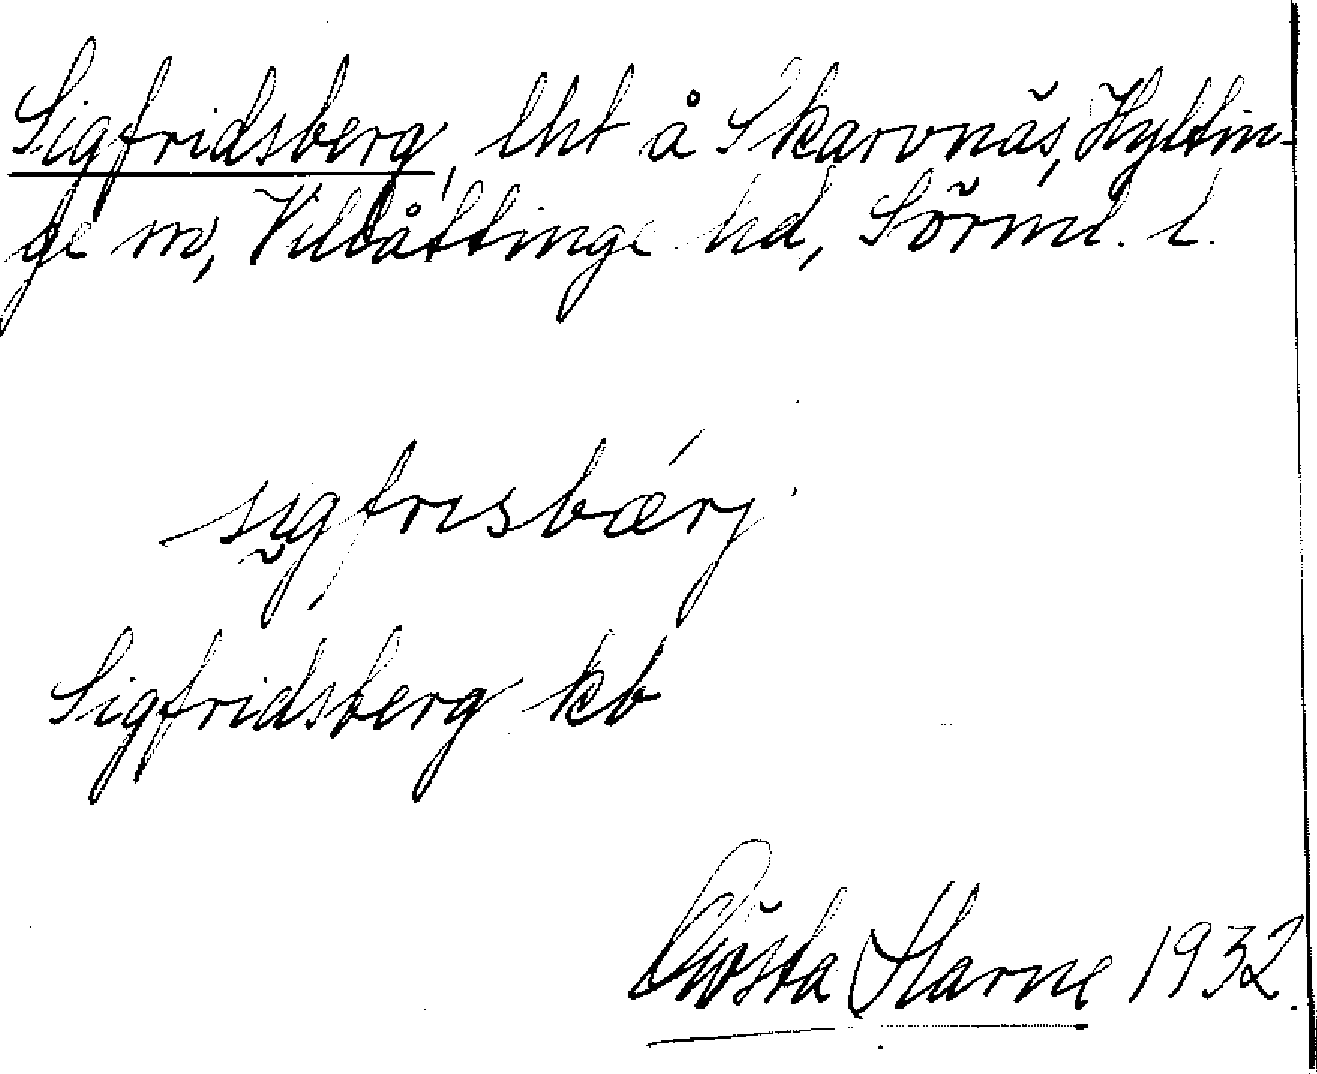 Sigfridsberg, lht å Skarvnäs, Hyltin-
ge sn, Villåttinge hd, Sörml. l.
sigfrisbærj
Sigfridsberg kb
Gösta Harne 1932.